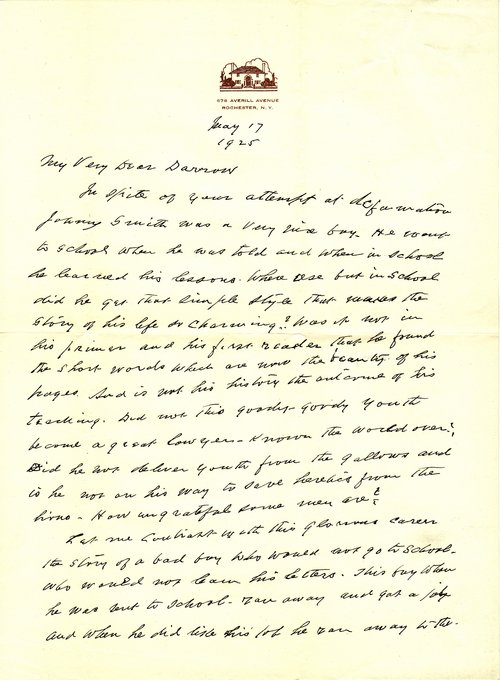 678 AVERILL AVENUE
ROCHESTER, N.Y.
May 17
1925
My Very Dear Darrow
In spite of your attempt at defamation
Johnny Smith was a very nice boy. He went
to school when he was told and when in school
he learned his lessons. Where else but in school
did he get that simple style that makes the
story of his life so charming? Was it not in
his primer and his first reader that he found
the short words which are now the beauty of his
pages. And is not his history the outcome of his
teaching. Did not this goody-goody youth
become a great lawyer - known the world over?
Did he not deliver youth from the gallows and
is he not on his way to save heretics from the
lions - How ungrateful some men are!
Let me contrast with this glorious career
the story of a bad boy who would not go to school -
who would not learn his letters. This boy when
he was sent to school - ran away and got a job
and when he did like his job he ran away to the